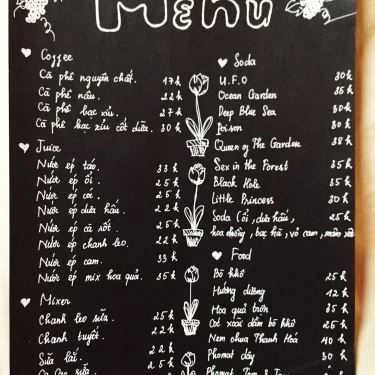 Menu
Coffee
Cà phê nguyên chất. 17k
Cà phê nâu. 22k
Cà phê bạc xỉu. 27k
Cà phê bạc xỉu cốt dừa. 30k
Juice
Nước ép táo. 33k
Nước ép ổi. 25k
Nước ép 25k
Nước ép dưa hấu. 22k
Nước ép cà rốt. 25k
Nước ép chanh leo. 22k
Nước ép cam. 33k
Nước ép mix hoa quả. 35k
Mixer
Chanh leo sữa. 25k
Chanh tuyết. 22k
Sữa lắc. 25k
Soda
U.F.O 30k
Ocean Garden 35k
Deep Blue Sea 30k
Poison 30k
Queen of The Garden 38k
Sex in the Forest 35k
Black Hole 35k
Little Princess 30k
Soda (ổi, dưa hấu,
hoa hồng, bạc hà, vỏ cam,
Food
Bò khô 25k
Hướng dương 12k
Hoa quả trộn 35k
bò khô 25k
Nem chua Thanh Hoá 40k
Phomat dây 30k
Phomat